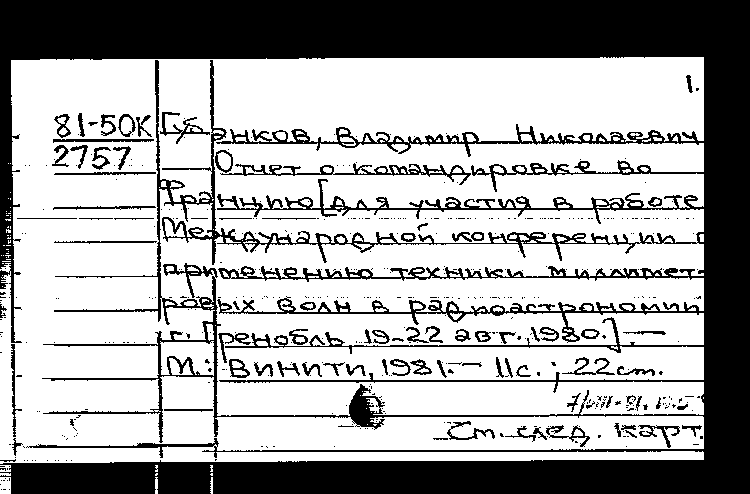 1.
81-50К Губанков, Владимир Николаевич
2757 Отчет о командировке во
Францию [для участия в работе
Международной конференции
применению техники миллимет-
ровых волн в радиоастрономии
г. Гренобль, 19-22 авг., 1980.] .—
М.: ВИНИТИ, 1981.— 11с.; 22см.
См. след. карт.